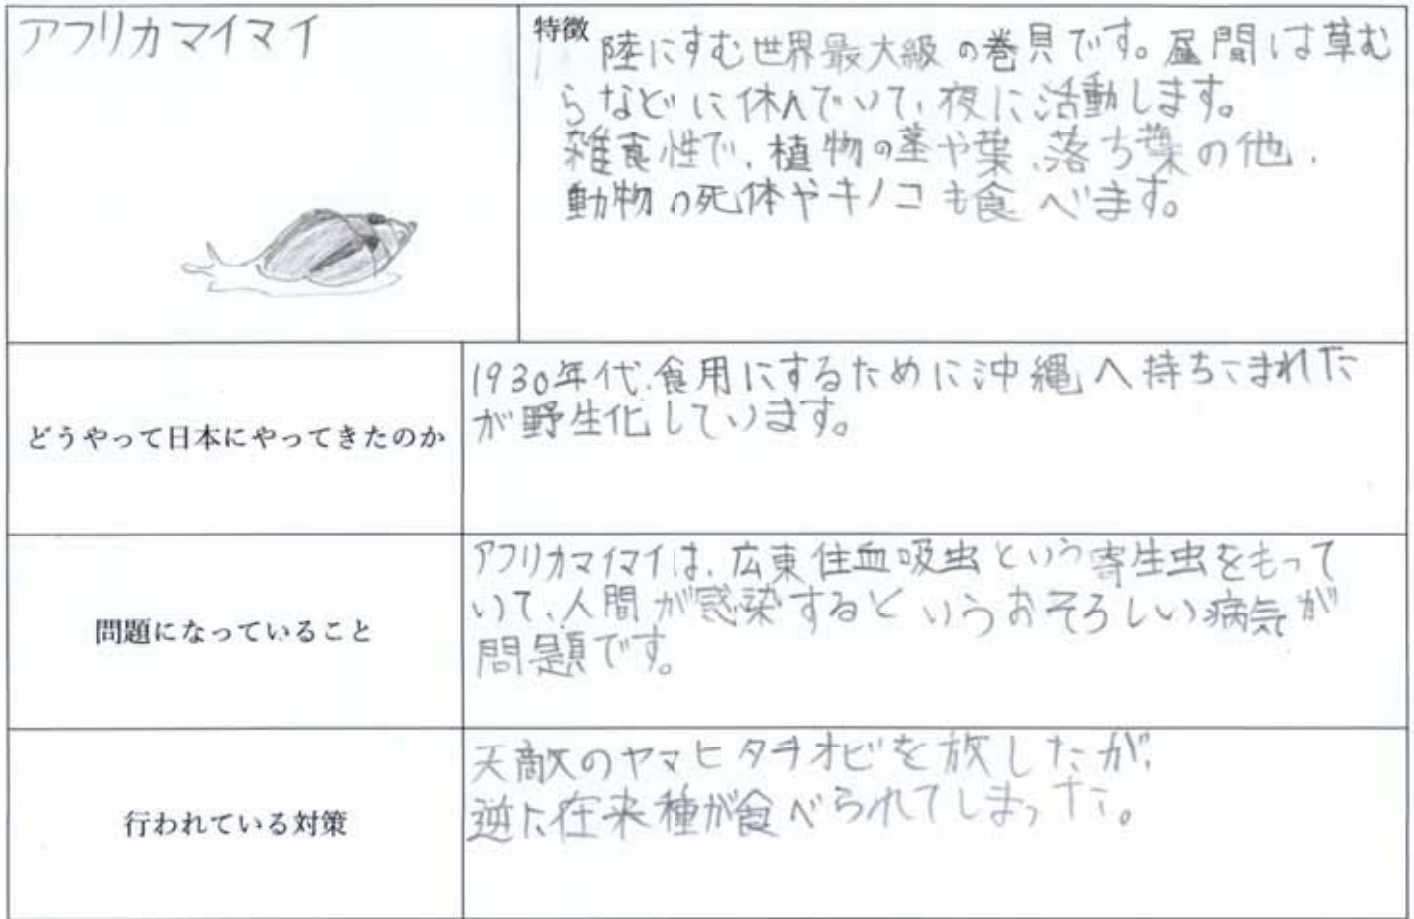 アフリカマイマイ
特徴
陸にすむ世界最大級の巻貝です。昼間は草む
らなどに休んでいて、夜に活動します。
雑食性で、植物の茎や葉、落ち葉の他、
動物の死体やキノコも食べます。
どうやって日本にやってきたのか
1930年代、食用にするために沖縄へ持ちこまれた
が野生化しています。
問題になっていること
アフリカマイマイは、広東住血吸虫という寄生虫をもって
いて、人間が感染するというおそろしい病気が
問題です。
行われている対策
天敵のヤマヒタチオビを放したが、
逆に在来種が食べられてしまった。